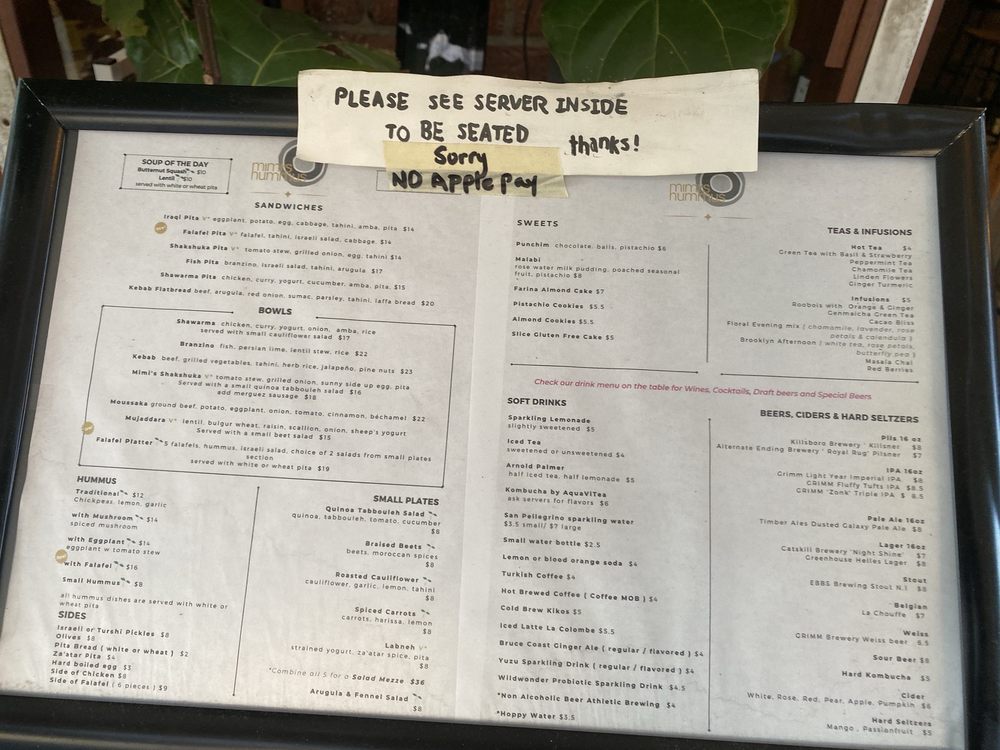 PLEASE SEE SERVER INSIDE
TO BE SEATED thanks!
Sorry
NO Apple pay
SOUP OF THE DAY
Butternut Squash $10
Lentil $10
served with white or wheat pita
hummus
SANDWICHES
Iraqi Pita V* eggplant, potato, egg, cabbage, tahini, amba, pita $14
Falafel Pita V* falafel, tahini, israeli salad, cabbage, $14
Shakshuka Pita V* tomato stew, grilled onion, egg, tahini $14
Fish Pita branzino, israeli salad, tahini, arugula $17
Shawarma Pita chicken, curry, yogurt, cucumber, amba, pita, $15
Kebab Flatbread beef, arugula, red onion, sumac, parsley, tahini, laffa bread $20
BOWLS
Shawarma chicken, curry, yogurt, onion, amba, rice
served with small cauliflower salad $17
Branzino fish, persian lime, lentil stew, rice $22
Kebab beef, grilled vegetables, tahini, herb rice, jalapeño, pine nuts $23
Mimi's Shakshuka V* tomato stew, grilled onion, sunny side up egg, pita
Served with a small quinoa tabbouleh salad $16
add merguez sausage $18
Moussaka ground beef, potato, eggplant, onion, tomato, cinnamon, béchamel $22
Mujaddara V* lentil, bulgur wheat, raisin, scallion, onion, sheep's yogurt
Served with a small beet salad $15
Falafel Platter 5 falafels, hummus, israeli salad, choice of 2 salads from small plates
section
served with white or wheat pita $19
HUMMUS
Traditional $12
Chickpeas, lemon, garlic
with Mushroom $14
spiced mushroom
with Eggplant $14
eggplant w tomato stew
with Falafel $16
Small Hummus $8
all hummus dishes are served with white or
wheat pita
SIDES
Israeli or Turshi Pickles $8
Olives $8
Pita Bread ( white or wheat ) $2
Za'atar Pita $4
Hard boiled egg $3
Side of Chicken $8
Side of Falafel ( 6 pieces ) $9
SMALL PLATES
Quinoa Tabbouleh Salad
quinoa, tabbouleh, tomato, cucumber
$8
Braised Beets
beets, moroccan spices
$8
Roasted Cauliflower
cauliflower, garlic, lemon, tahini
$8
Spiced Carrots
carrots, harissa, lemon
$8
Labneh V*
strained yogurt, za'atar spice, pita
$8
*Combine all 5 for a Salad Mezze $36
Arugula & Fennel Salad
$8
hummus
SWEETS
Punchim chocolate, balls, pistachio $6
Malabi
rose water milk pudding, poached seasonal
fruit, pistachio $8
Farina Almond Cake $7
Pistachio Cookies $5.5
Almond Cookies $5.5
Slice Gluten Free Cake $5
TEAS & INFUSIONS
Hot Tea $4
Green Tea with Basil & Strawberry
Peppermint Tea
Chamomile Tea
Linden Flowers
Ginger Turmeric
Infusions $5
Roobois with Orange & Ginger
Genmaicha Green Tea
Cacao Bliss
Floral Evening mix ( chamomile, lavender, rose
petals & calendula )
Brooklyn Afternoon ( white tea, rose petals,
butterfly pea )
Masala Chai
Red Berries
Check our drink menu on the table for Wines, Cocktails, Draft beers and Special Beers
SOFT DRINKS
Sparkling Lemonade
slightly sweetened $5
Iced Tea
sweetened or unsweetened $4
Arnold Palmer
half iced tea, half lemonade $5
Kombucha by AquaViTea
ask servers for flavors $6
San Pellegrino sparkling water
$3.5 small/ $7 large
Small water bottle $2.5
Lemon or blood orange soda $4
Turkish Coffee $4
Hot Brewed Coffee ( Coffee MOB ) $4
Cold Brew Kikos $5
Iced Latte La Colombe $5.5
Bruce Coast Ginger Ale ( regular / flavored ) $4
Yuzu Sparkling Drink ( regular / flavored ) $4
Wildwonder Probiotic Sparkling Drink $4.5
*Non Alcoholic Beer Athletic Brewing $4
*Hoppy Water $3.5
BEERS, CIDERS & HARD SELTZERS
Pils 16 oz
Killsboro Brewery ' Killsner $8
Alternate Ending Brewery ' Royal Rug' Pilsner $7
IPA 16oz
Grimm Light Year Imperial IPA $8
GRIMM Fluffy Tufts IPA $8.5
GRIMM 'Zonk' Triple IPA $ 8.5
Pale Ale 16oz
Timber Ales Dusted Galaxy Pale Ale $8
Lager 16oz
Catskill Brewery 'Night Shine' $7
Greenhouse Helles Lager $8
Stout
EBBS Brewing Stout N.1 $8
Belgian
La Chouffe $7
Weiss
GRIMM Brewery Weiss beer 6.5
Sour Beer $8
Hard Kombucha $5
Cider
White, Rose, Red, Pear, Apple, Pumpkin $6
Hard Seltzers
Mango , Passionfruit $5